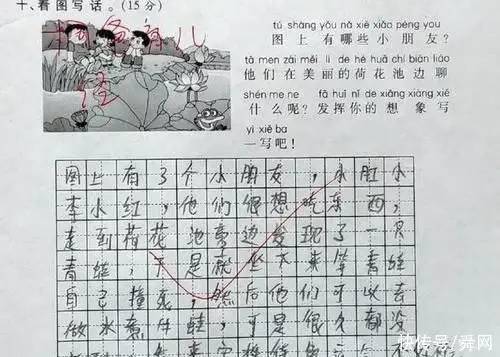 十、看图写话。(15 分)
tú shàng yǒu nǎ xiē xiǎo péng you
图上有哪些小朋友?
tā men zài měi lì de hé huā chí biān liáo
他们在美丽的荷花池边聊
shén me ne fā huī nǐ de xiǎng xiàng xiě
什么呢?发挥你的想象写
yì xiě ba
一写吧!
图上有了个小朋友,小肛小
李小红,他们很想吃东西,
走到荷花池旁边发现了一只
青蛙,于是就坐下来等青蛙
自己撞死,然后他们可以去
做水煮牛蛙,可是很久都没
快传号/舜网